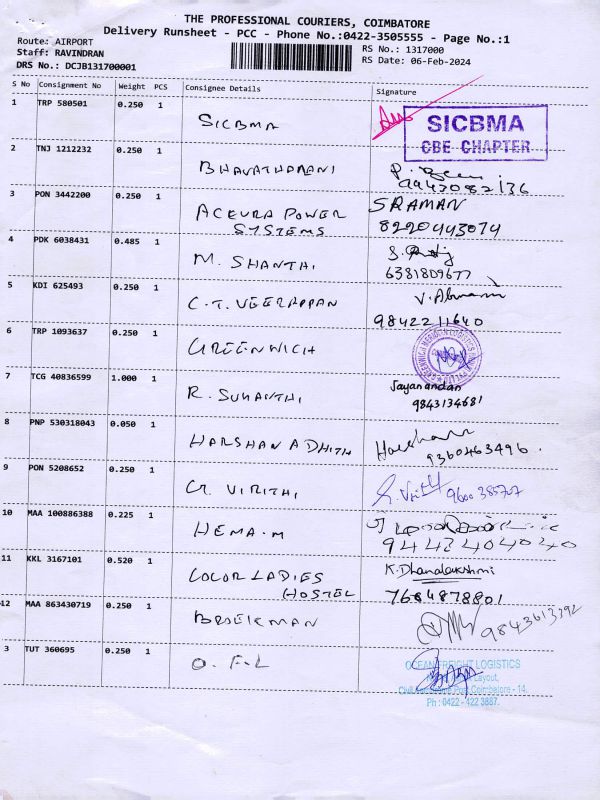 THE PROFESSIONAL COURIERS, COIMBATORE
Delivery Runsheet - PCC - Phone No.:0422-3505555 - Page No.:1
Route: AIRPORT
RS No.: 1317000
Staff: RAVINDRAN
RS Date: 06-Feb-2024
DRS No.: DCJB131700001
S No Consignment No Weight PCS Consignee Details Signature
1 TRP 580501 0.250 1 SICBMA
SICBMA
CBE CHAPTER
2 TNJ 1212232 0.250 1 BHAVATHARANI
9942082136
3 PON 3442200 0.250 1 ACEURA POWER SRAMAN
SYSTEMS 8220443074
4 PDK 6038431 0.485 1 M. SHANTHI
6381809677
5 KDI 625493 0.250 1 C.T. VEERAPPAN
9842211640
6 TRP 1093637 0.250 1 GREENWICH
7 TCG 40836599 1.000 1 R. SUMANTHI Jayanandan
9843134681
8 PNP 530318043 0.050 1 HARSHAN ADHITH
9360463496.
9 PON 5208652 0.250 1 G. VIRITHI 9600 385707
10 MAA 100886388 0.225 1 HEMA.M
9442404040
11 KKL 3167101 0.520 1 COLOR LADIES K.Dhanalakshmi
HOSTEL 7684878801
12 MAA 863430719 0.250 1 BROEKMAN 9843613392
3 TUT 360695 0.250 1 O.F.L
OCEAN FREIGHT LOGISTICS
Layout,
Post, Coimbatore - 14.
Ph : 0422 - 422 3887.